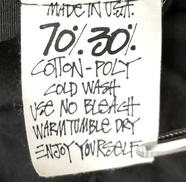 MADE IN U.S.A.
70% 30%
COTTON-POLY
COLD WASH
USE NO BLEACH
WARM TUMBLE DRY
ENJOY YOURSELF